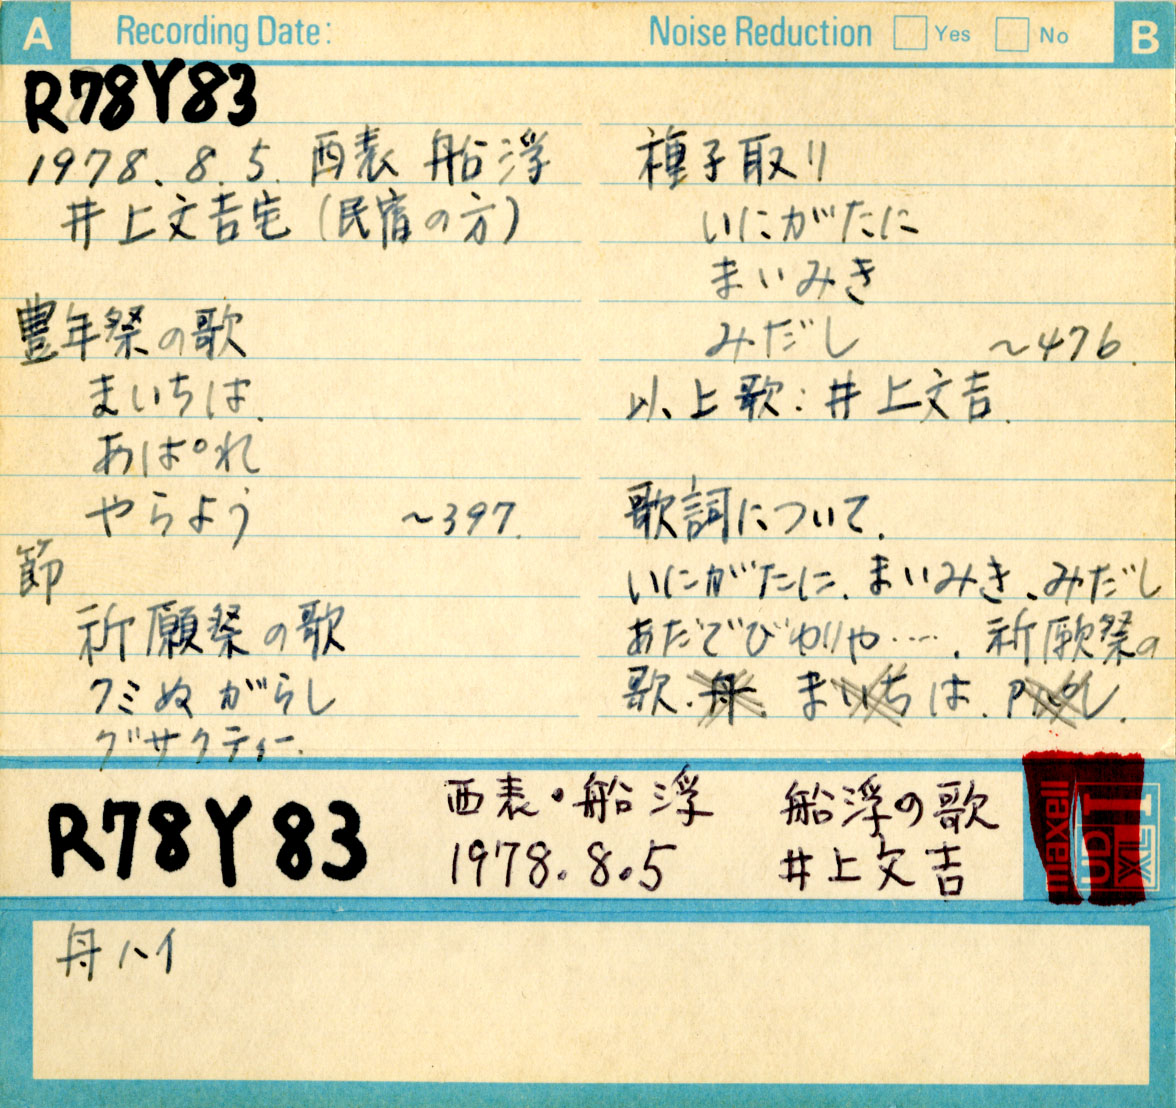 A Recording Date: Noise Reduction Yes No B
R78Y83
1978. 8. 5. 西表 船浮
井上文吉宅 (民宿の方)
豊年祭の歌
まいちは.
あぱれ
やらよう ~397.
節
祈願祭の歌
クミぬがらし
グサクティー.
種子取り
いにがたに
まいみき
みだし ~476.
以上歌:井上文吉.
歌詞について.
いにがたに. まいみき、みだし
あだでびやりや……. 祈願祭の
歌. 舟. まいちは.
R78Y83
西表・船浮
1978.8.5
船浮の歌
井上文吉
maxell
UD
XL I
舟ハイ